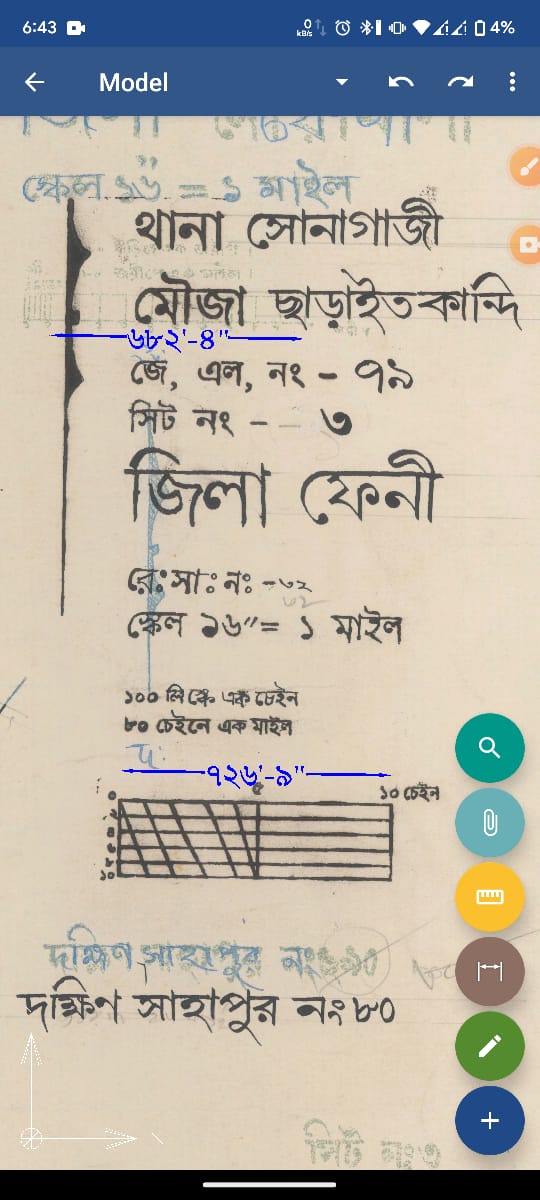 6:43 4%
Model
স্কেল ১৬" = ১ মাইল
থানা সোনাগাজী
মৌজা ছাড়াইতকান্দি
৬৮২'-৪"
জে, এল, নং - ৭৯
সিট নং - ৩
জিলা ফেনী
রে:সা: নং -৩২
স্কেল ১৬"= ১ মাইল
১০০ লিঙ্কে এক চেইন
৮০ চেইনে এক মাইল
৭২৬'-৯"
০ ৫ ১০ চেইন
২
৪
৬
৮
১০
দক্ষিণ সাহাপুর নং
দক্ষিণ সাহাপুর নং ৮০
সিট নং৩